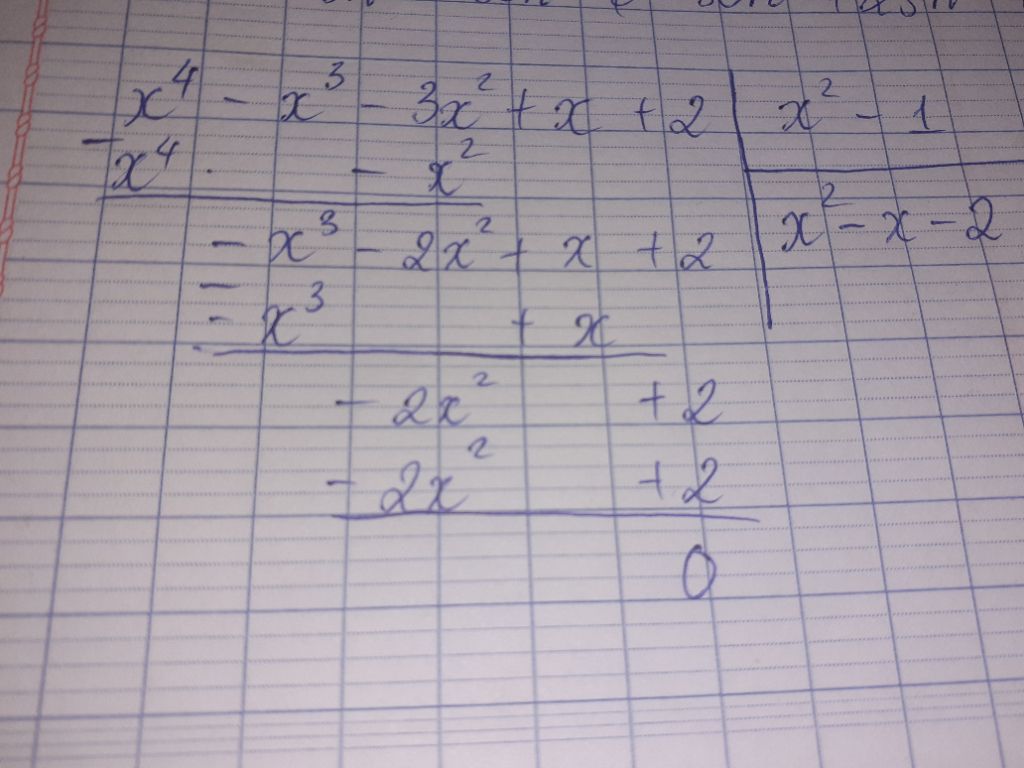 x⁴ - x³ - 3x² + x + 2 | x² - 1
- x⁴ - x²
x² - x - 2
- x³ - 2x² + x + 2
-
- x³ + x
- 2x² + 2
- 2x² + 2
0